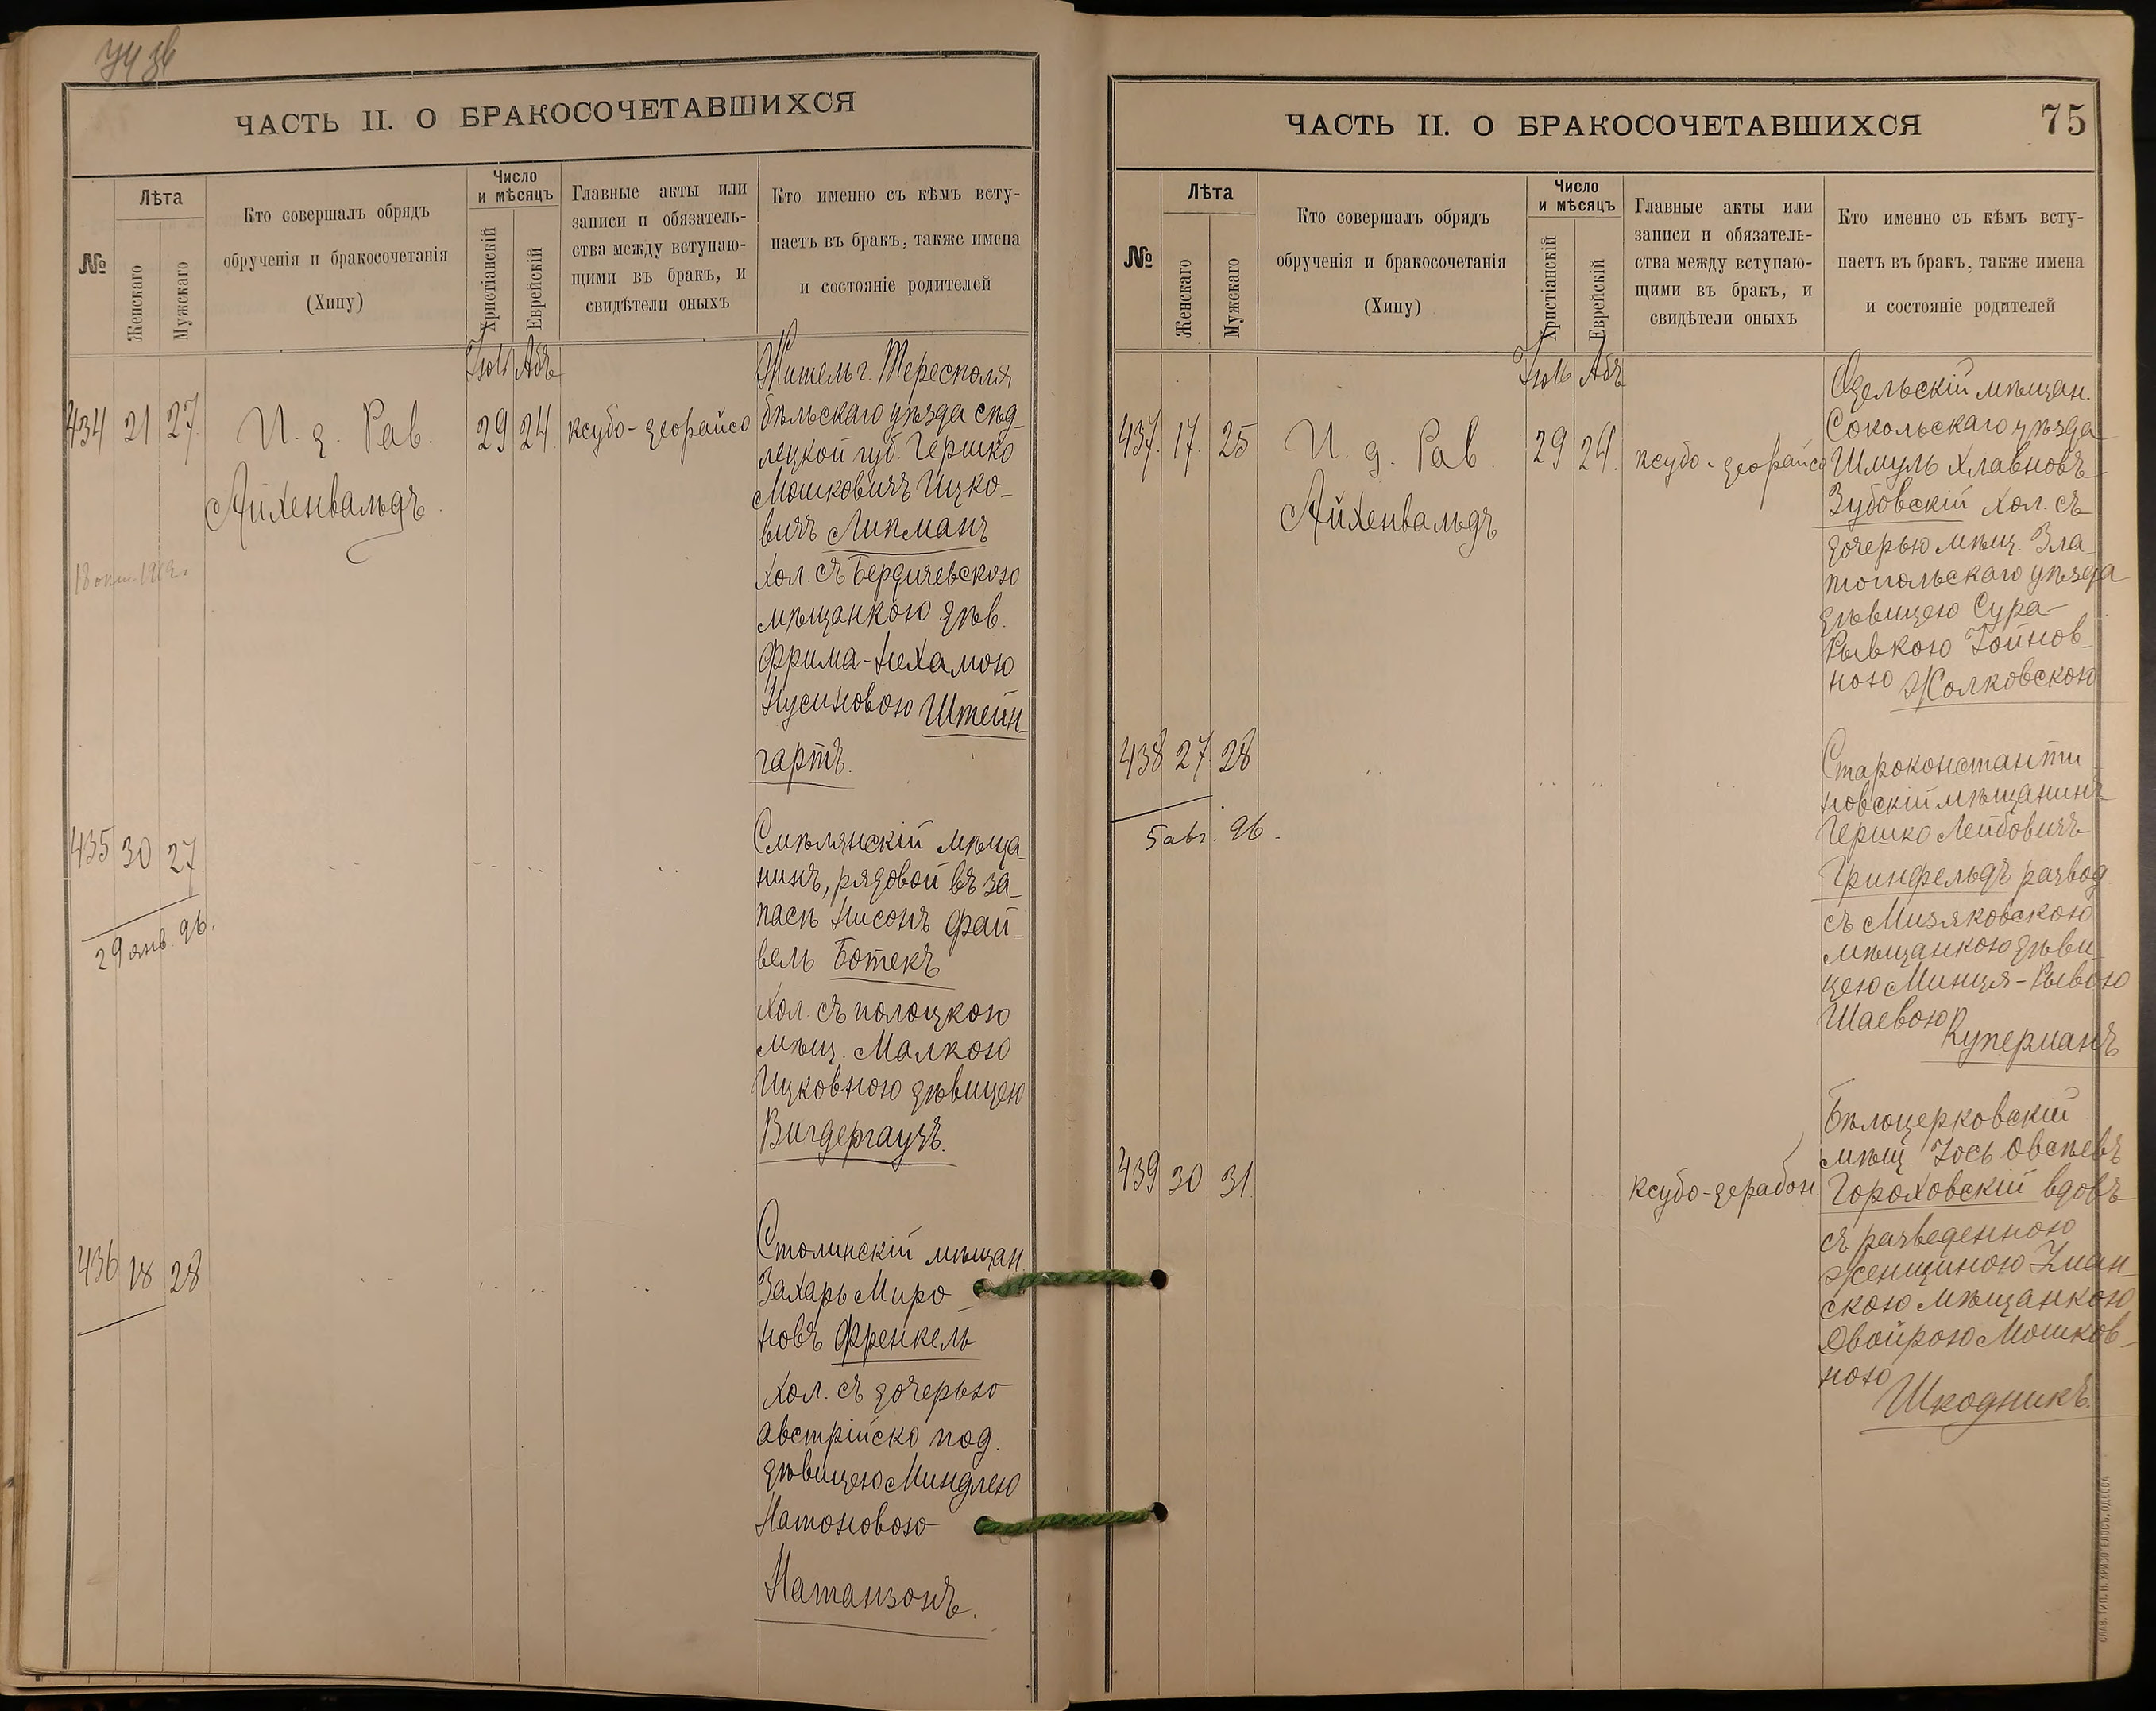 ЧАСТЬ II. О БРАКОСОЧЕТАВШИХСЯ
№
Лѣта
Женскаго
Мужскаго
Кто совершалъ обрядъ
обрученія и бракосочетанія
(Хипу)
Число
и мѣсяцъ
Христіанскій
Еврейскій
Главные акты или
записи и обязатель-
ства между вступаю-
щими въ бракъ, и
свидѣтели оныхъ
Кто именно съ кѣмъ всту-
паетъ въ бракъ, также имена
и состояніе родителей
Іюль Абъ
434 21 27
И. д. Рав.
Айхенвальдъ
29 24
ксубо-деорайсо
Житель г. Тересполя
бѣльскаго уѣзда сѣд-
лецкой губ. Гершко
Мошковичъ Ицко-
вичъ Липманъ
хол. съ Бердичевскою
мѣщанкою дѣв.
Фрима-Нехамою
Нусиновою Штейн-
гартъ.
18 окт. 1912.
435 30 27
29 янв. 96.
Смѣлянскій мѣща-
нинъ, рядовой въ за-
пасѣ Нисонъ Фай-
вель Ботекъ
хол. съ полоцкою
мѣщ. Малкою
Ицковною дѣвицею
Вигдергаузъ.
436 18 28
Столинскій мѣщан
Захаръ Миро-
новъ Френкель
хол. съ дочерью
австрійско под.
дѣвицею Миндлею
Натоновою
Натанзонъ.
ЧАСТЬ II. О БРАКОСОЧЕТАВШИХСЯ
75
№
Лѣта
Женскаго
Мужскаго
Кто совершалъ обрядъ
обрученія и бракосочетанія
(Хипу)
Число
и мѣсяцъ
Христіанскій
Еврейскій
Главные акты или
записи и обязатель-
ства между вступаю-
щими въ бракъ, и
свидѣтели оныхъ
Кто именно съ кѣмъ всту-
паетъ въ бракъ, также имена
и состояніе родителей
Іюль Абъ
437. 17. 25
И. д. Рав.
Айхенвальдъ
29 24.
ксубо-деорайсо
Одельскій мѣщан.
Сокольскаго уѣзда
Шмуль Хлавновъ
Зубовскій хол. съ
дочерью мѣщ. Зла-
топольскаго уѣзда
дѣвицею Сура-
Рывкою Гойнов-
ною Жолковскою
438 27 28
5 авг. 96.
Староконстанти-
новскій мѣщанинъ
Гершко Лейбовичъ
Гринфельдъ развод
съ Мизяковскою
мѣщанкою дѣви-
цею Минця-Рывою
Шаевою
Куперманъ
439 30 31
ксубо-дерабон
Бѣлоцерковскій
мѣщ. Іось Овсѣевъ
Гороховскій вдовъ
съ разведенною
женщиною Уман-
скою мѣщанкою
Двойрою Мошков-
ною
Шкодникъ.
СЛАВ. ТИП. Н. ХРИСОГЕЛОСЪ, ОДЕССА